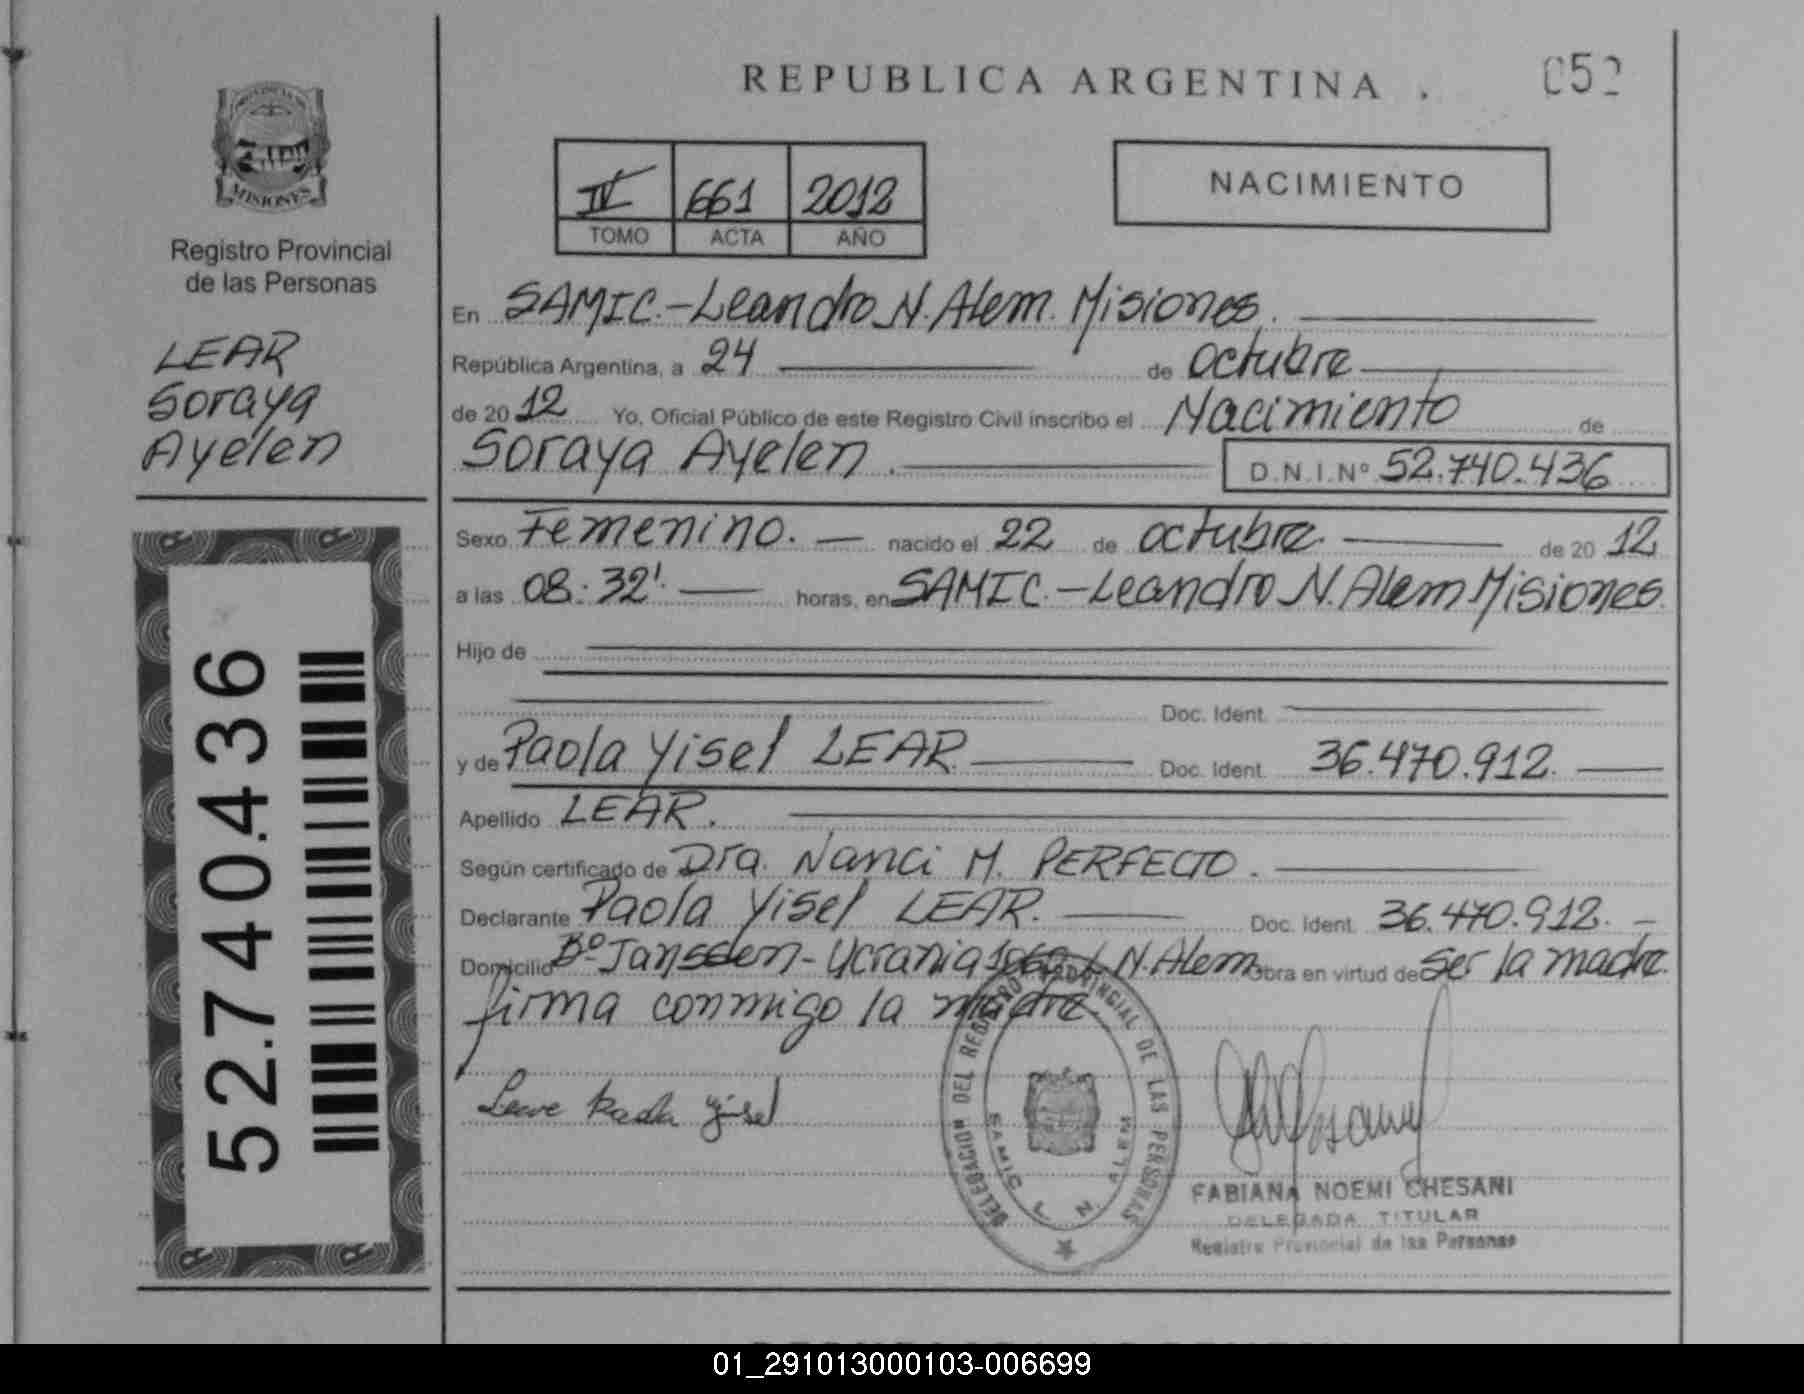 REPUBLICA ARGENTINA .
052
PROVINCIA DE
MISIONES
Registro Provincial
de las Personas
LEAR
Soraya
Ayelen
52.740.436
IV 661 2012
TOMO ACTA AÑO
NACIMIENTO
En SAMIC.-Leandro N. Alem. Misiones.
República Argentina, a 24 de octubre
de 2012 Yo, Oficial Público de este Registro Civil inscribo el Nacimiento de
Soraya Ayelen. D.N.I.Nº 52.740.436
Sexo Femenino. nacido el 22 de octubre. de 2012
a las 08:32'. horas, en SAMIC.-Leandro N. Alem Misiones.
Hijo de
Doc. Ident.
y de Paola Yisel LEAR. Doc. Ident. 36.470.912.
Apellido LEAR.
Según certificado de Dra. Nanci M. PERFECTO.
Declarante Paola Yisel LEAR. Doc. Ident. 36.470.912.
Domicilio Bº Janssen-Ucrania L. N. Alem Obra en virtud de ser la madre.
firma conmigo la madre.
Yisel
DELEGACION DEL REGISTRO PROVINCIAL DE LAS PERSONAS
SAMIC L. N. ALEM
FABIANA NOEMI CHESANI
DELEGADA TITULAR
Registro Provincial de las Personas
01_291013000103-006699